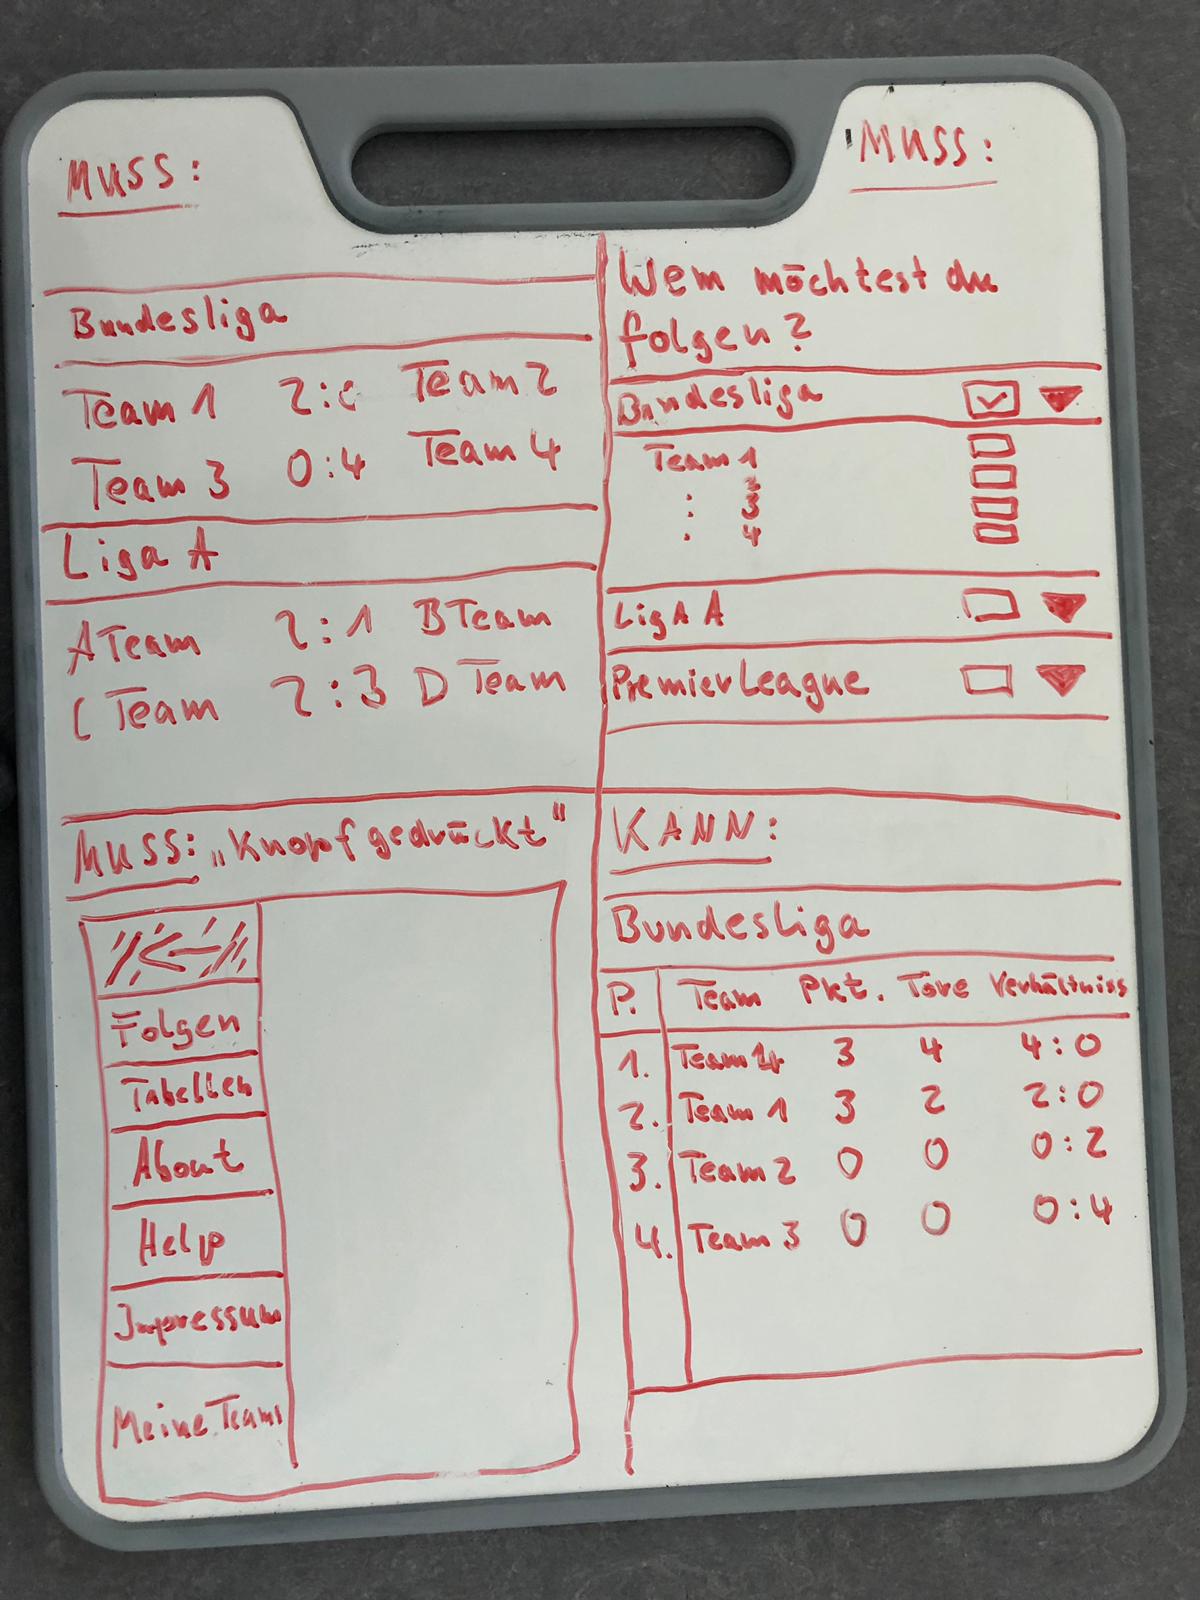 MUSS:
Bundesliga
Team 1 2:0 Team 2
Team 3 0:4 Team 4
Liga A
A Team 2:1 B Team
C Team 2:3 D Team
MUSS:
Wem möchtest du
folgen?
Bundesliga
Team 1
: 2
: 3
: 4
LigA A
Premier League
MUSS: „Knopf gedrückt"
←
Folgen
Tabellen
About
Help
Impressum
Meine Teams
KANN:
Bundesliga
P. Team Pkt. Tore Verhältniss
1. Team 4 3 4 4:0
2. Team 1 3 2 2:0
3. Team 2 0 0 0:2
4. Team 3 0 0 0:4